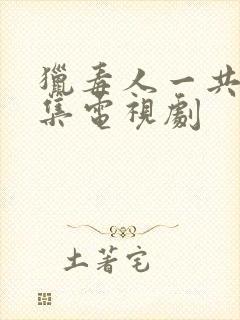 獵毒人一共
集電視劇
土著宅